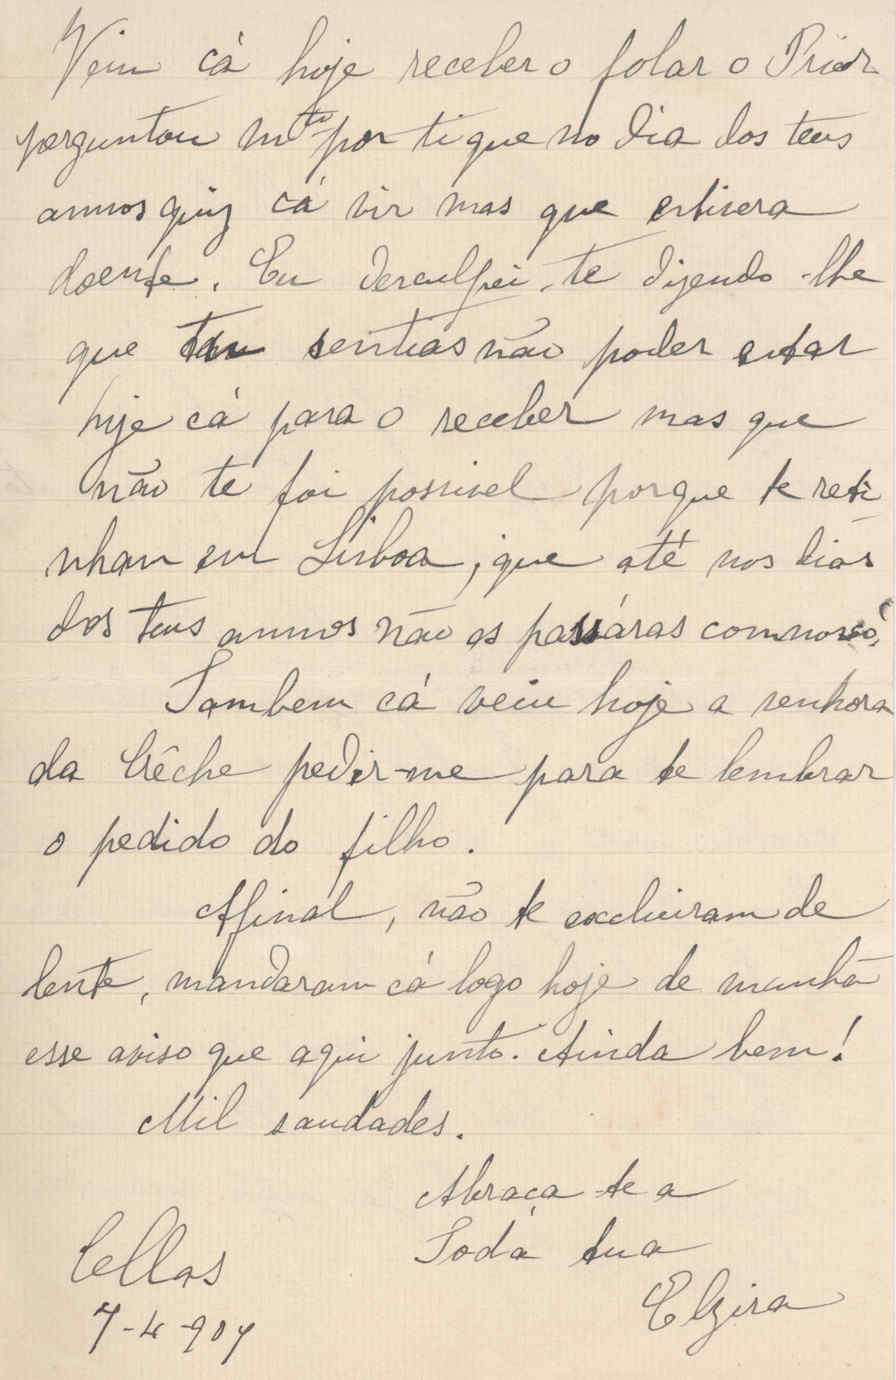 Veiu cá hoje receber o folar o Prior
perguntou mto por ti que no dia dos teus
annos quiz cá vir mas que estivera
doente. Eu desculpei-te dizendo-lhe
que tu sentias não poder estar
hoje cá para o receber mas que
não te foi possivel porque te reti
nham em Lisboa, que até nos dias
dos teus annos não os passáras comnosco.
Tambem cá veiu hoje a senhora
da Crêche pedir-me para te lembrar
o pedido do filho.
Afinal, não te excluiram de
lente, mandaram cá logo hoje de manhã
esse aviso que aqui junto. Ainda bem!
Mil saudades.
Abraça-te a
Toda tua
Elzira
Cellas
7-4-907